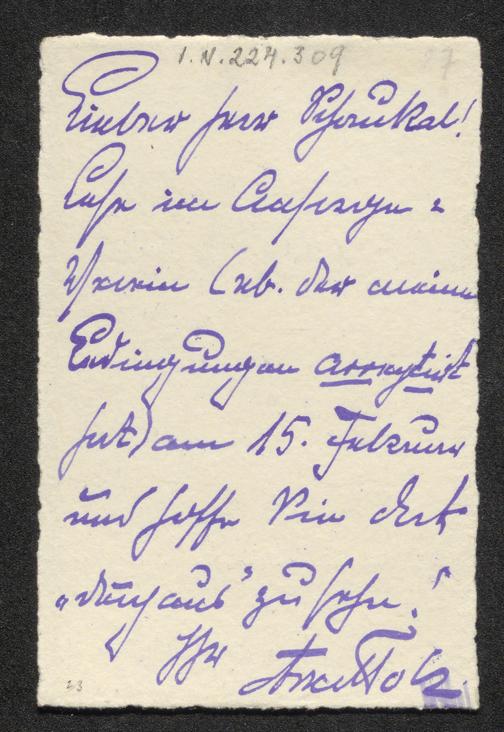 I.N.224.309
Lieber Herr Schaukal!
Lese im Ansorge-
Verein (eb. der meine
Bedingungen acceptirt
hat) am 15. Februar
und hoffe Sie dort
„durchaus" zu sehn!
Ihr Arno Holz